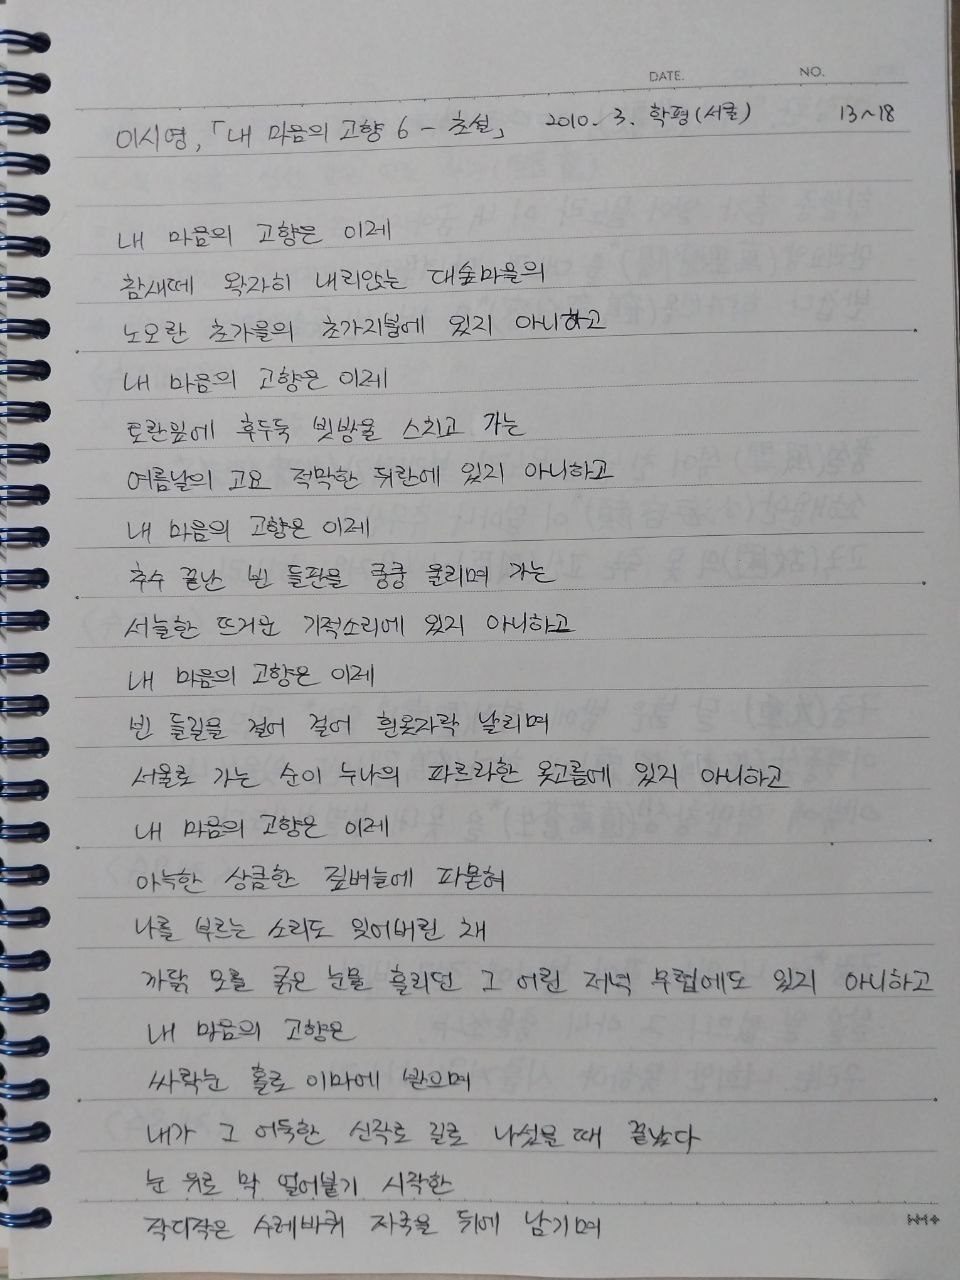 DATE. NO.
이시영, 「내 마음의 고향 6 - 초설」 2010. 3. 학평(서울) 13~18
내 마음의 고향은 이제
참새떼 왁자히 내리앉는 대숲마을의
노오란 초가을의 초가지붕에 있지 아니하고
내 마음의 고향은 이제
토란잎에 후두둑 빗방울 스치고 가는
여름날의 고요 적막한 뒤란에 있지 아니하고
내 마음의 고향은 이제
추수 끝난 빈 들판을 쿵쿵 울리며 가는
서늘한 뜨거운 기적소리에 있지 아니하고
내 마음의 고향은 이제
빈 들길을 걸어 걸어 흰옷자락 날리며
서울로 가는 순이 누나의 파르라한 옷고름에 있지 아니하고
내 마음의 고향은 이제
아늑한 상큼한 짚벼늘에 파묻혀
나를 부르는 소리도 잊어버린 채
까닭 모를 굵은 눈물 흘리던 그 어린 저녁 무렵에도 있지 아니하고
내 마음의 고향은
싸락눈 홀로 이마에 받으며
내가 그 어둑한 신작로 길로 나섰을 때 끝났다
눈 위로 막 얼어붙기 시작한
작디작은 수레바퀴 자국을 뒤에 남기며